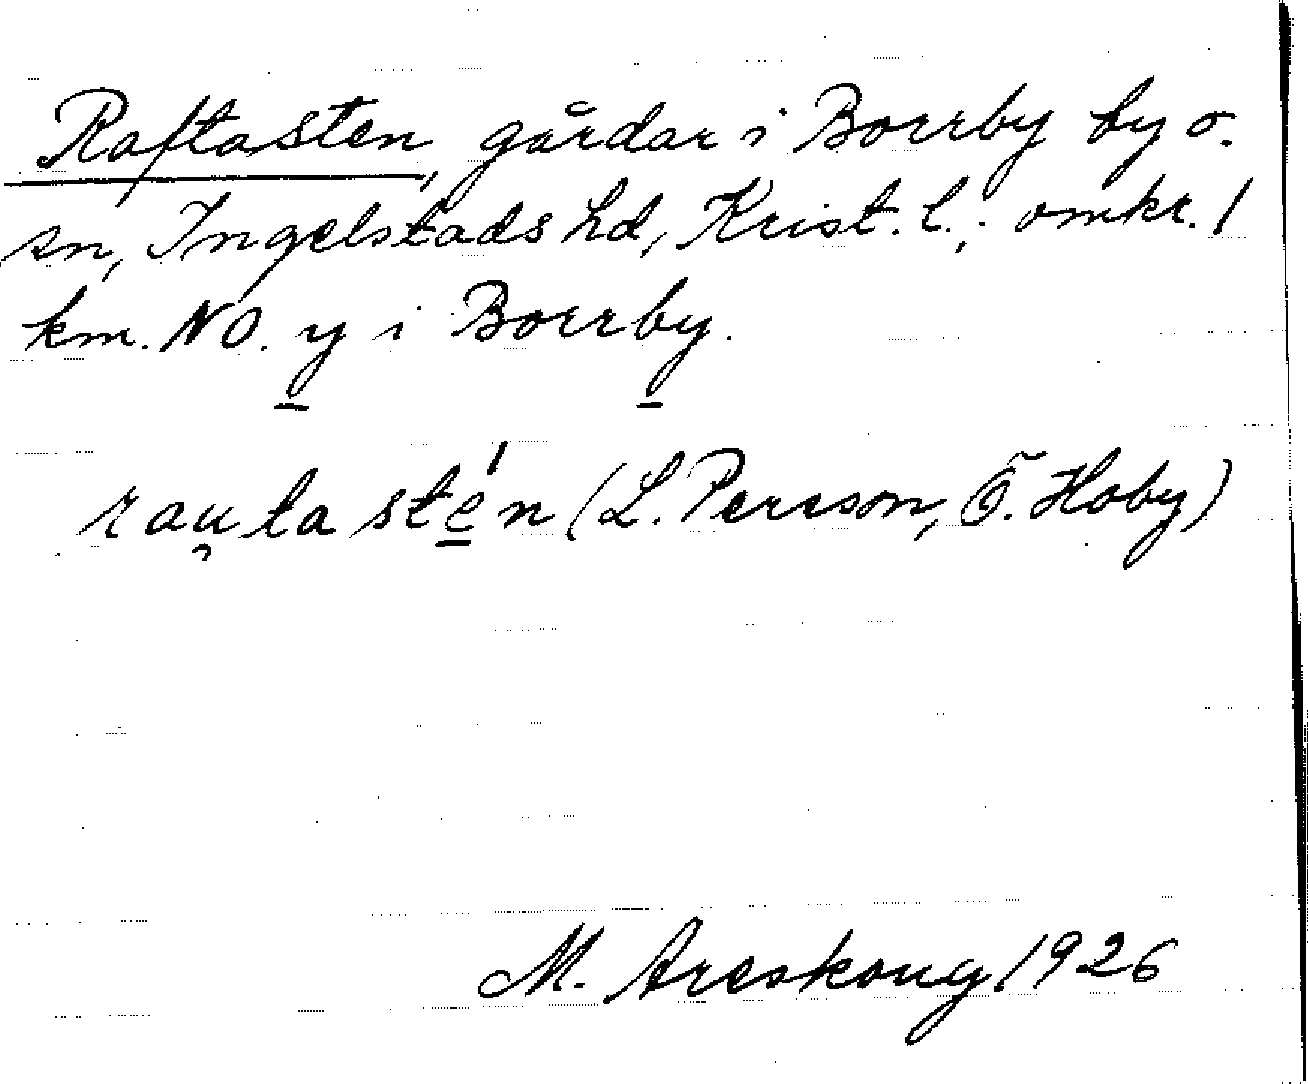 Raftasten, gårdar i Borrby by o.
sn, Ingelstads hd, Krist. l.; omkr. 1
km. NO. y i Borrby.
rau̯ta stén (L. Persson, Ö. Hoby)
M. Areskoug 1926